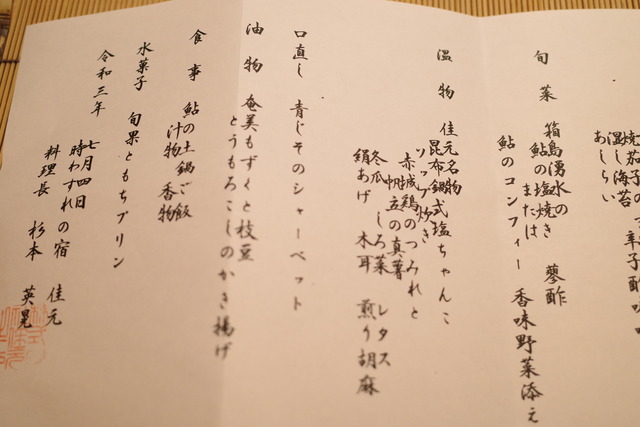 焼茄子の
温し海苔
あしらい
旬菜 箱島湧水の
鮎の塩焼き 蓼酢
または
鮎のコンフィー 香味野菜添え
温物 佳元名物
昆布鍋式塩ちゃんこ
ソップ炊き
赤城鶏のつみれと
帆立の真薯
冬瓜 しろ菜 レタス
絹あげ 木耳 煎り胡麻
口直し 青じそのシャーベット
油物 奄美もずくと枝豆
とうもろこしのかき揚げ
食事 鮎の土鍋ご飯
汁物 香物
水菓子 旬果ともちプリン
令和三年
七月四日
時わすれの宿 佳元
料理長 杉本 英晃